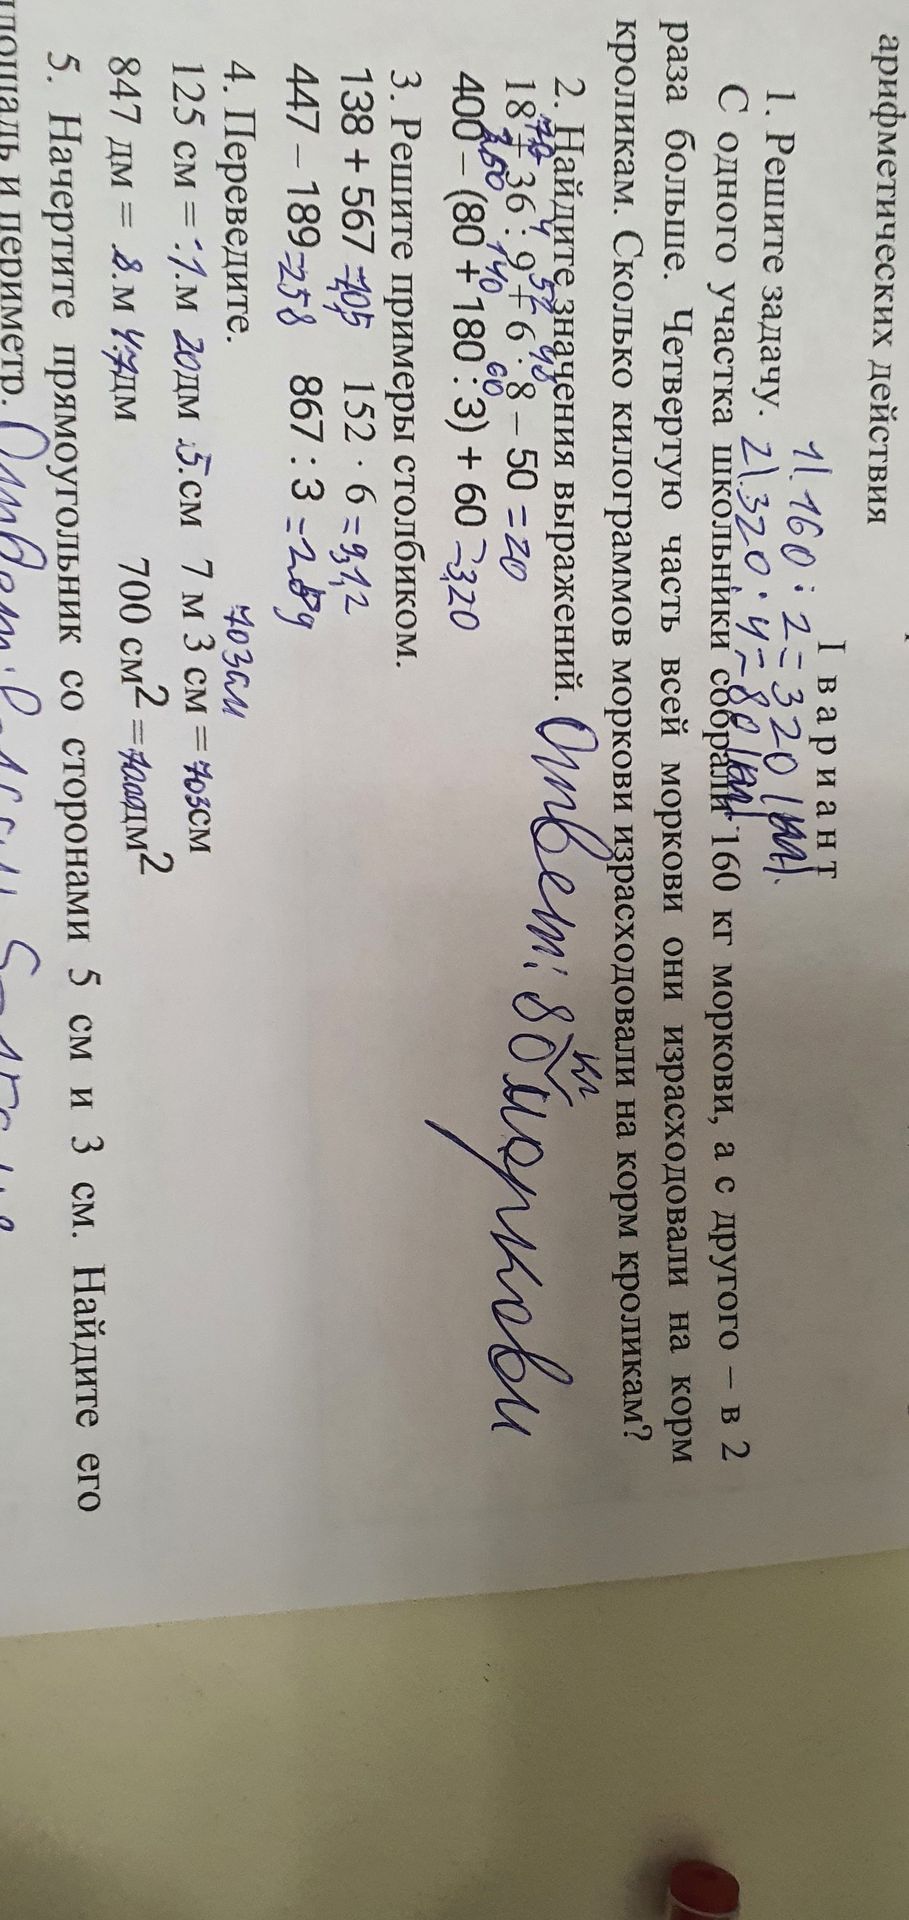 арифметических действия
I вариант
1) 160 : 2 = 320 (кг).
1. Решите задачу. 2) 320 : 4 = 80 (кг).
С одного участка школьники собрали 160 кг моркови, а с другого – в 2
раза больше. Четвертую часть всей моркови они израсходовали на корм
кроликам. Сколько килограммов моркови израсходовали на корм кроликам?
2. Найдите значения выражений. Ответ: 80 кг моркови
70 4 54 48
18 + 36 : 9 + 6 · 8 – 50 = 20
140 60
400 – (80 + 180 : 3) + 60 = 320
3. Решите примеры столбиком.
138 + 567 = 705 152 · 6 = 912
447 – 189 = 258 867 : 3 = 289
4. Переведите.
703 см
125 см = 1 м 20 дм 5 см 7 м 3 см = 703 см
847 дм = 8 м 47 дм 700 см² = 700 дм²
5. Начертите прямоугольник со сторонами 5 см и 3 см. Найдите его
площадь и периметр.